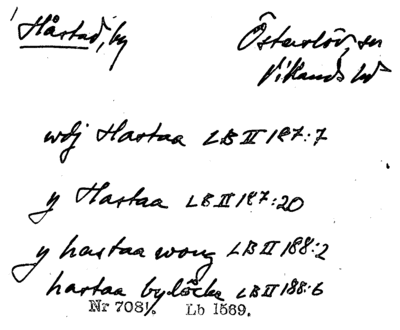 Håstad, by
Österslöv, sn
Villands hd
wdj Hastaa LB II 187:7
y Hastaa LB II 187:20
y hastaa wong LB II 188:2
hastaa bylöcke LB II 188:6
Nr 7081. Lb 1569.